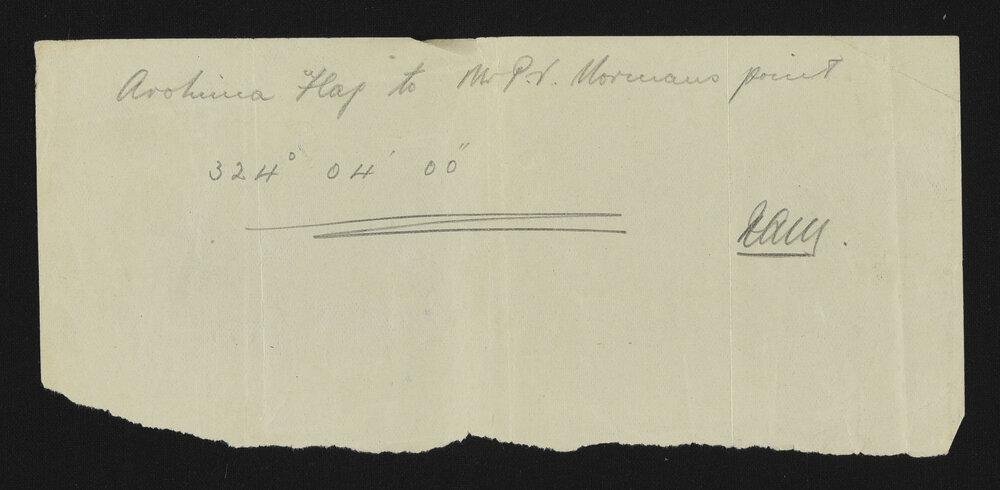 Arohena Flag to Mr P. V. Normans point
324° 04' 00"